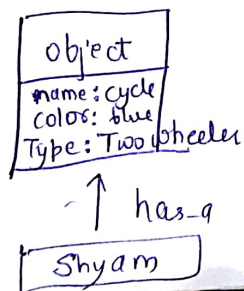 object
name: cycle
color: blue
Type: Two wheeler
has-a
Shyam